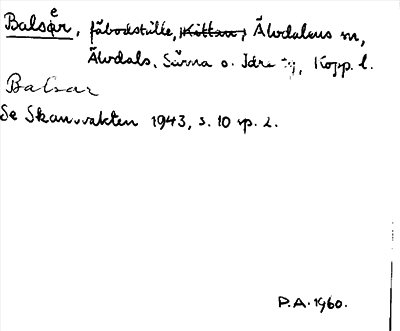 Balsær, fäbodställe, Älvdalens m,
Älvdals, Särna o. Idre tg, Kopp. l.
Balsar
Se Skansvakten 1943, s. 10 sp. 2.
P.A. 1960.